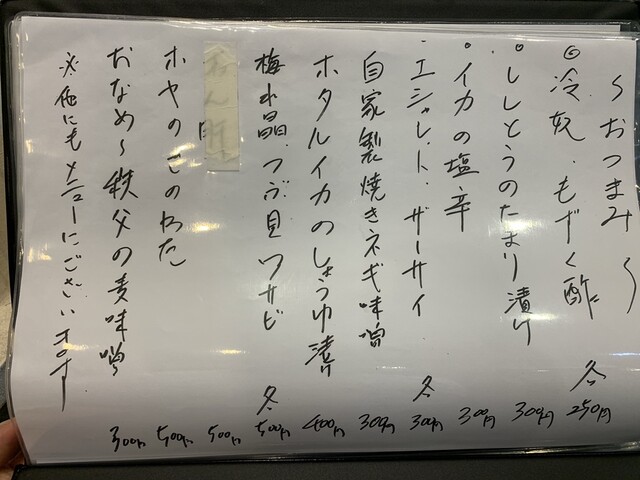 〜おつまみ〜
◎冷奴・もずく酢 各250円
・ししとうのたまり漬け 300円
・イカの塩辛 300円
・エシャレット・ザーサイ 各300円
自家製焼きネギ味噌 300円
ホタルイカのしょうゆ漬け 400円
梅水晶・つぶ貝ワサビ 各500円
500円
ホヤのこのわた 500円
おなめ〜秩父の麦味噌 300円
※他にもメニューにございます